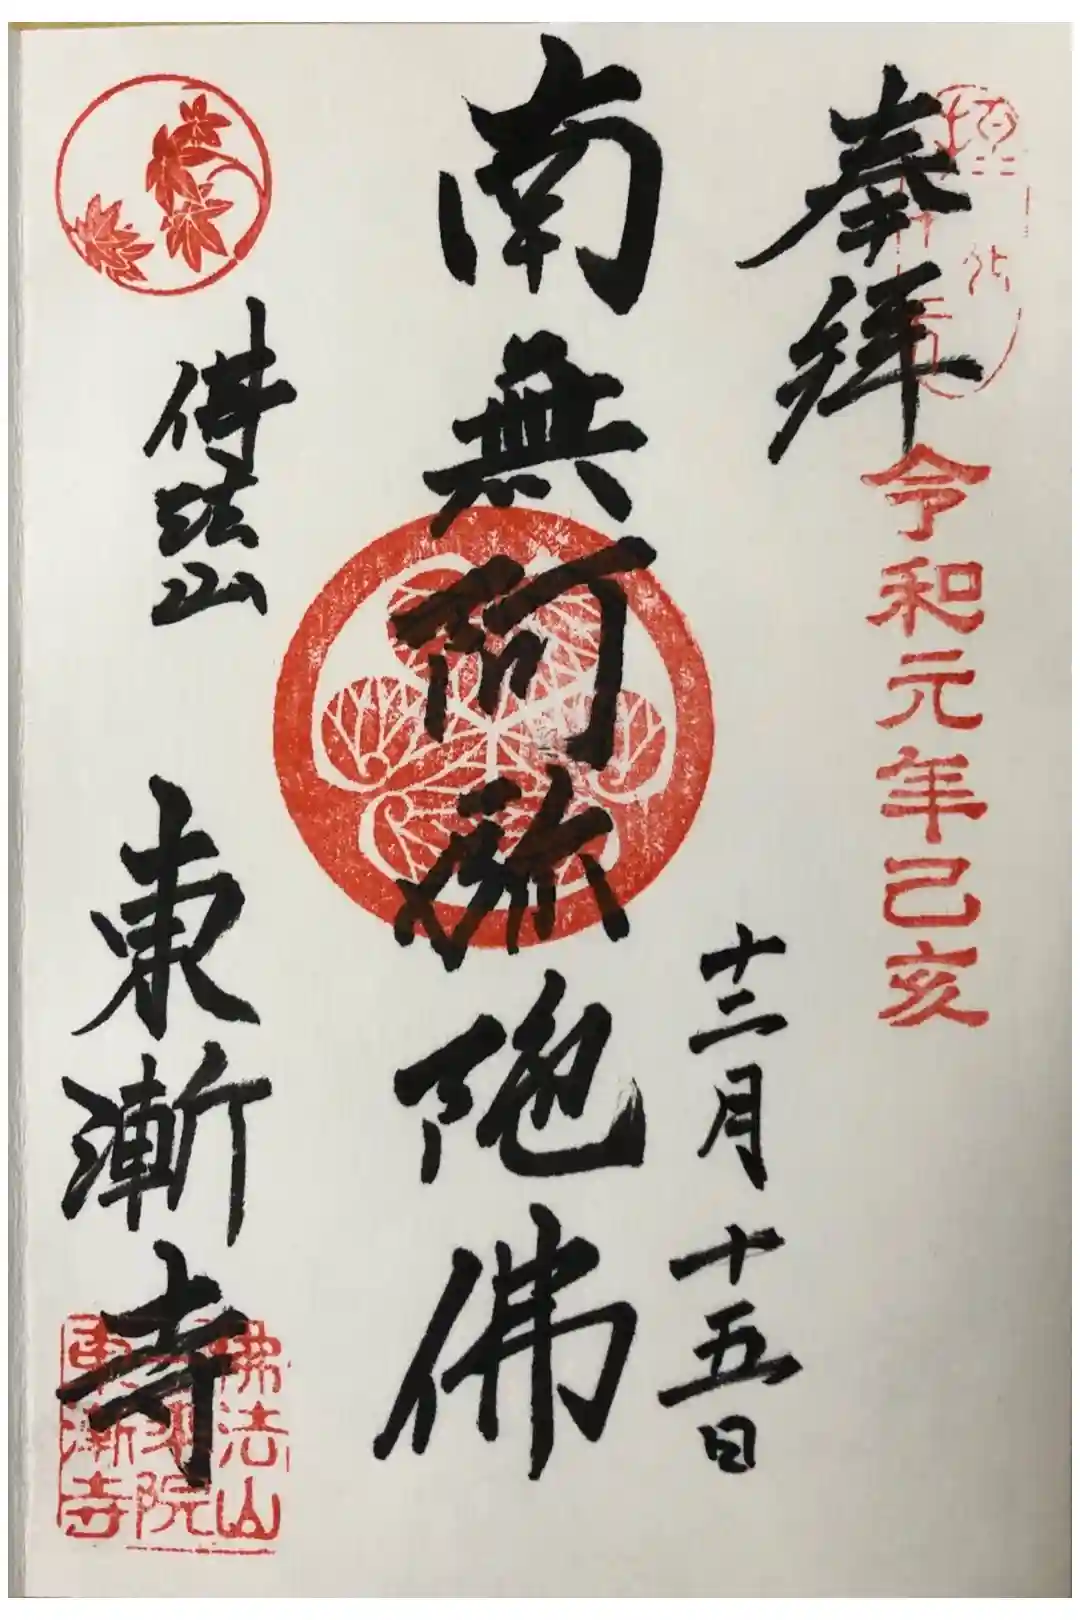 奉拝
令和元年己亥
十二月十五日
南無阿弥陀佛
佛法山
東漸寺
佛法山
院
東漸寺